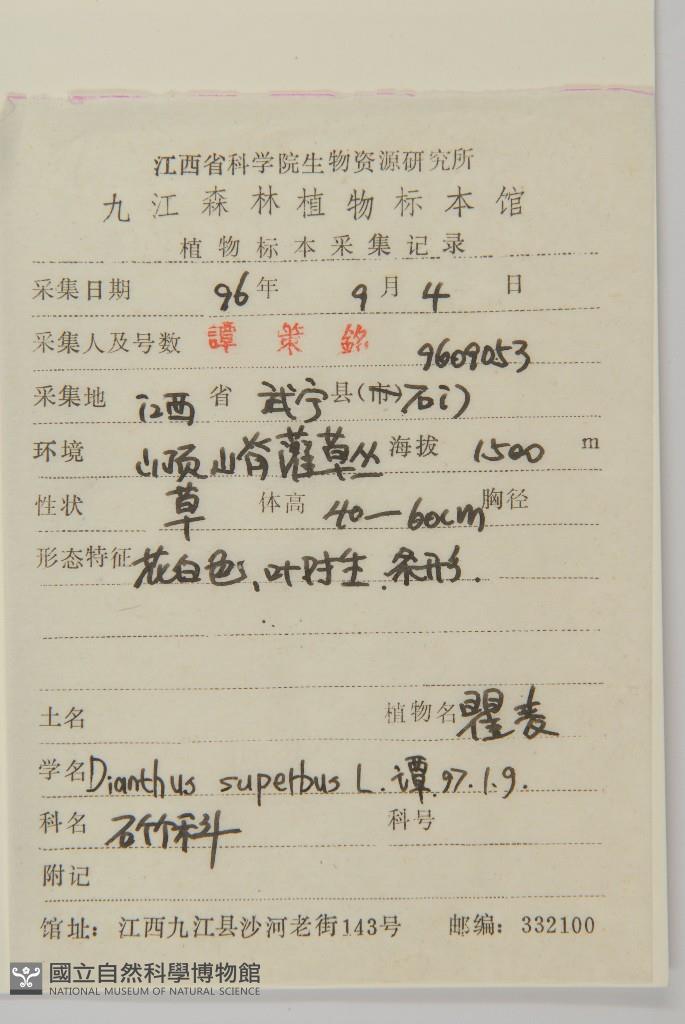 江西省科学院生物资源研究所
九江森林植物标本馆
植物标本采集记录
采集日期 96年 9月 4日
采集人及号数 譚策銘 9609053
采集地 江西省 武宁县(市)石门
环境 山顶山脊灌草丛 海拔 1500 m
性状 草 体高 40—60cm 胸径
形态特征 花白色、叶对生.条形.
土名 植物名 瞿麦
学名 Dianthus superbus L. 谭.97.1.9.
科名 石竹科 科号
附记
馆址：江西九江县沙河老街143号 邮编：332100
國立自然科學博物館
NATIONAL MUSEUM OF NATURAL SCIENCE